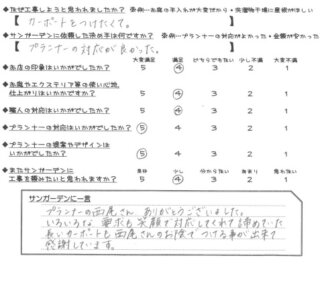 ◆なぜ工事しようと思われましたか？ 条例…お庭の手入れが大変だから・洗濯物干場に屋根がほしい
【 カーポートをつけたくて。 】
◆サンガーデンに依頼した決め手は何ですか？ 条例…プランナーの対応がよかった・金額が安かった
【 プランナーの対応が良かった。 】
大変満足 満足 どちらでもない 少し不満 大変不満
◆お店の印象はいかがでしたか？ 5 ④ 3 2 1
◆お庭やエクステリア等の使い心地、
仕上がりはいかがですか？ 5 ④ 3 2 1
◆職人の対応はいかがでしたか？ 5 ④ 3 2 1
◆プランナーの対応はいかがでしたか？ ⑤ 4 3 2 1
◆プランナーの提案やデザインは
いかがでしたか？ ⑤ 4 3 2 1
◆またサンガーデンに
工事を頼みたいと思われますか？ 5 ④ 3 2 1
サンガーデンに一言
プランナーの西尾さん ありがとうございました。
いろいろな 要求も笑顔で対応してくれて 諦めていた
長いカーポートも西尾さんのお陰で つける事が出来て
感謝しています。